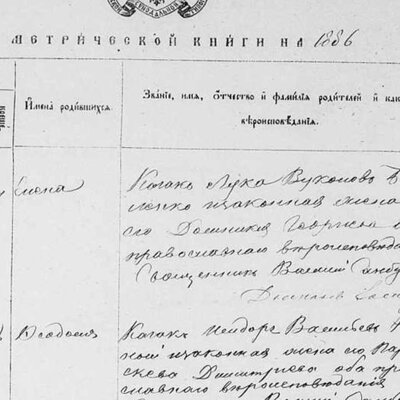 МЕТРИ́ЧЕСКОЙ КНИ́ГИ НА 1886
И́мена роди́вшихся.
Зва́ніе, имя, о́тчество и́ фами́лія роди́телей и́ как
вѣроисповѣ́данія.
Елена
Козакъ Лука Вуколовъ
ленко и законная жена
го Домникія Георгіева
православнаго вѣроисповѣд
Священникъ Василій
Ѳеодосія
Козакъ Исидоръ Васильевъ
ной и законная жена его Пар
скева Димитріева оба пра
славнаго вѣроисповѣданія